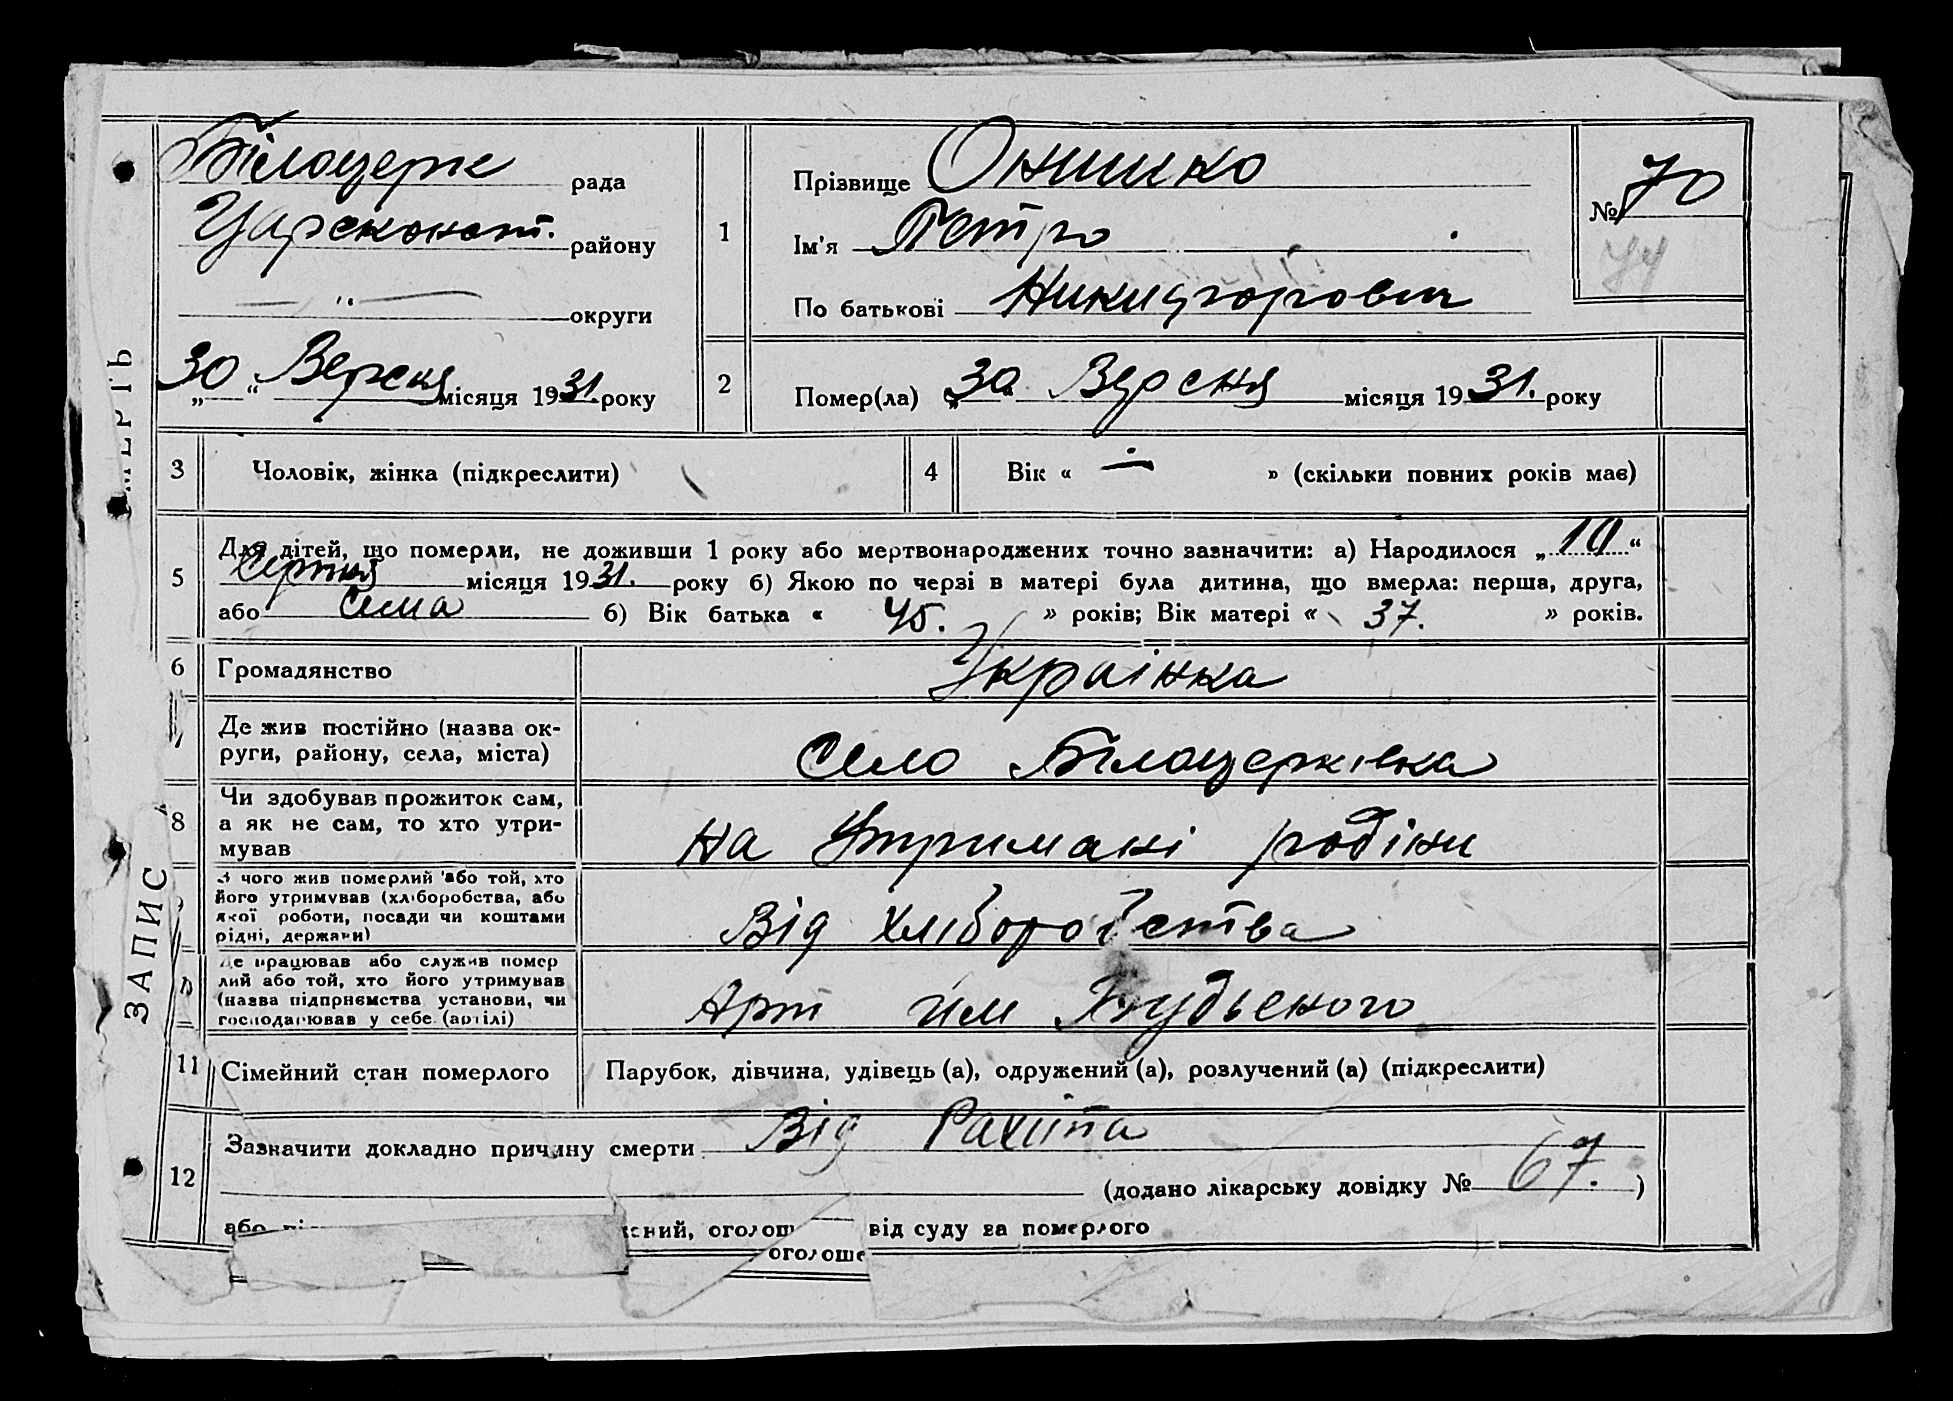 Білоцерк рада
Царсконст. району
— " — округи
„30“ Версня місяця 1931. року
1
Прізвище Онишко
Ім'я Петро
По батькові Никифорович
№ 70
74
2
Помер(ла) „30“ Версня місяця 1931. року
3 Чоловік, жінка (підкреслити)
4 Вік « — » (скільки повних років має)
5 Для дітей, що померли, не доживши 1 року або мертвонароджених точно зазначити: а) Народилося „10“
Серпня місяця 1931. року б) Якою по черзі в матері була дитина, що вмерла: перша, друга,
або сема б) Вік батька « 45. » років; Вік матері « 37. » років.
6 Громадянство Украінка
7 Де жив постійно (назва ок-
руги, району, села, міста)
Село Білоцерківка
8 Чи здобував прожиток сам,
а як не сам, то хто утри-
мував
на Утримані родіни
З чого жив померлий або той, хто
його утримував (хліборобства, або
якої роботи, посади чи коштами
рідні, держави)
Від хліборобства
Де працював або служив помер
лий або той, хто його утримував
(назва підприємства установи, чи
господарював у себе (артілі)
Арт им
11 Сімейний стан померлого Парубок, дівчина, удівець (а), одружений (а), розлучений (а) (підкреслити)
12 Зазначити докладно причину смерти Від Рахита
(додано лікарську довідку № 67. )
або оголош від суду за померлого
оголоше
ЗАПИС